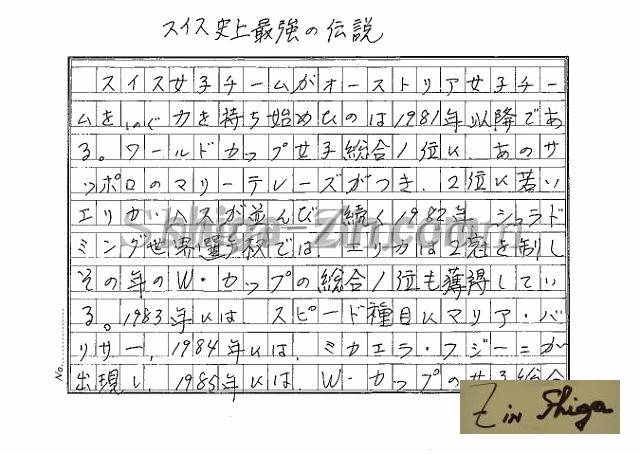 スイス史上最強の伝説
スイス女子チームがオーストリア女子チー
ムをしのぐ力を持ち始めたのは1981年以降であ
る。ワールドカップ女子総合1位に、あのサ
ッポロのマリーテレーズがつき、2位に若い
エリカ・ヘスが並んび、続く1982年、シュラド
ミング世界選手権では、エリカは2冠を制し
その年のW・カップの総合1位も獲得してい
る。1983年には、スピード種目にマリア・バ
リサー、1984年には、ミカエラ・フジーニが
出現し、1985年には、W・カップの女子総合
No.
Shiga-Zin.com
Zin Shiga